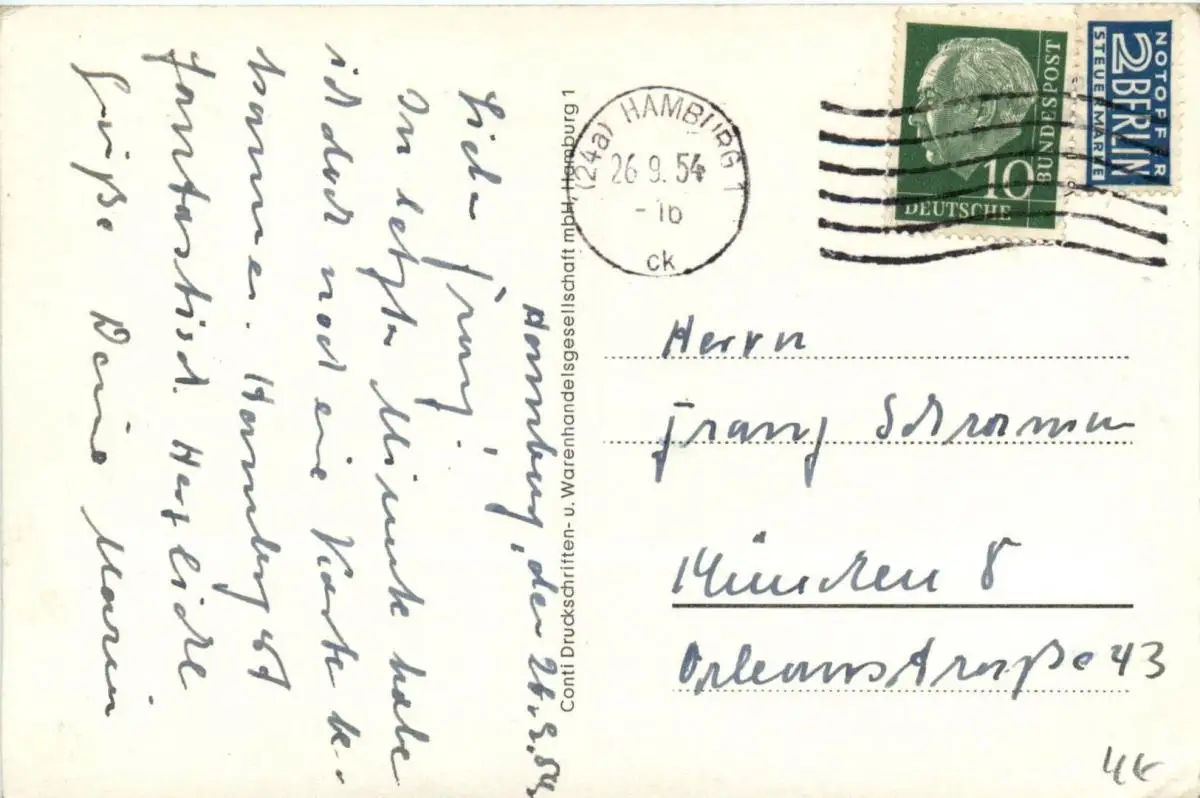 Hamburg, den 26.9.54.
Lieber Franz!
In letzter Minute habe
ich doch noch eine Karte be-
kommen. Hamburg ist
fantastisch. Herzliche
Grüße Deine
Conti Druckschriften- u. Warenhandelsgesellschaft mbH, Hamburg 1
(24a) HAMBURG 1
26.9.54
-16
ck
10
DEUTSCHE
BUNDESPOST
NOTOPFER
2 BERLIN
STEUERMARKE
Herrn
Franz
München 8
Orleansstraße 43